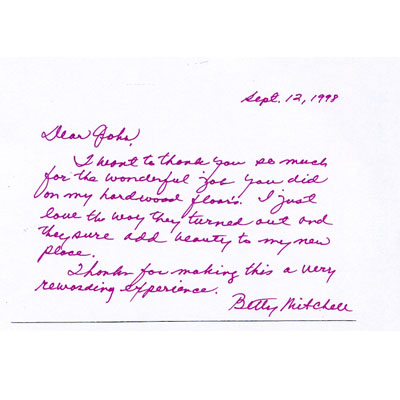 Sept. 12, 1998
Dear John,
I want to thank you so much
for the wonderful job you did
on my hardwood floors. I just
love the way they turned out and
they sure add beauty to my new
place.
Thanks for making this a very
rewarding experience.
Betty Mitchell